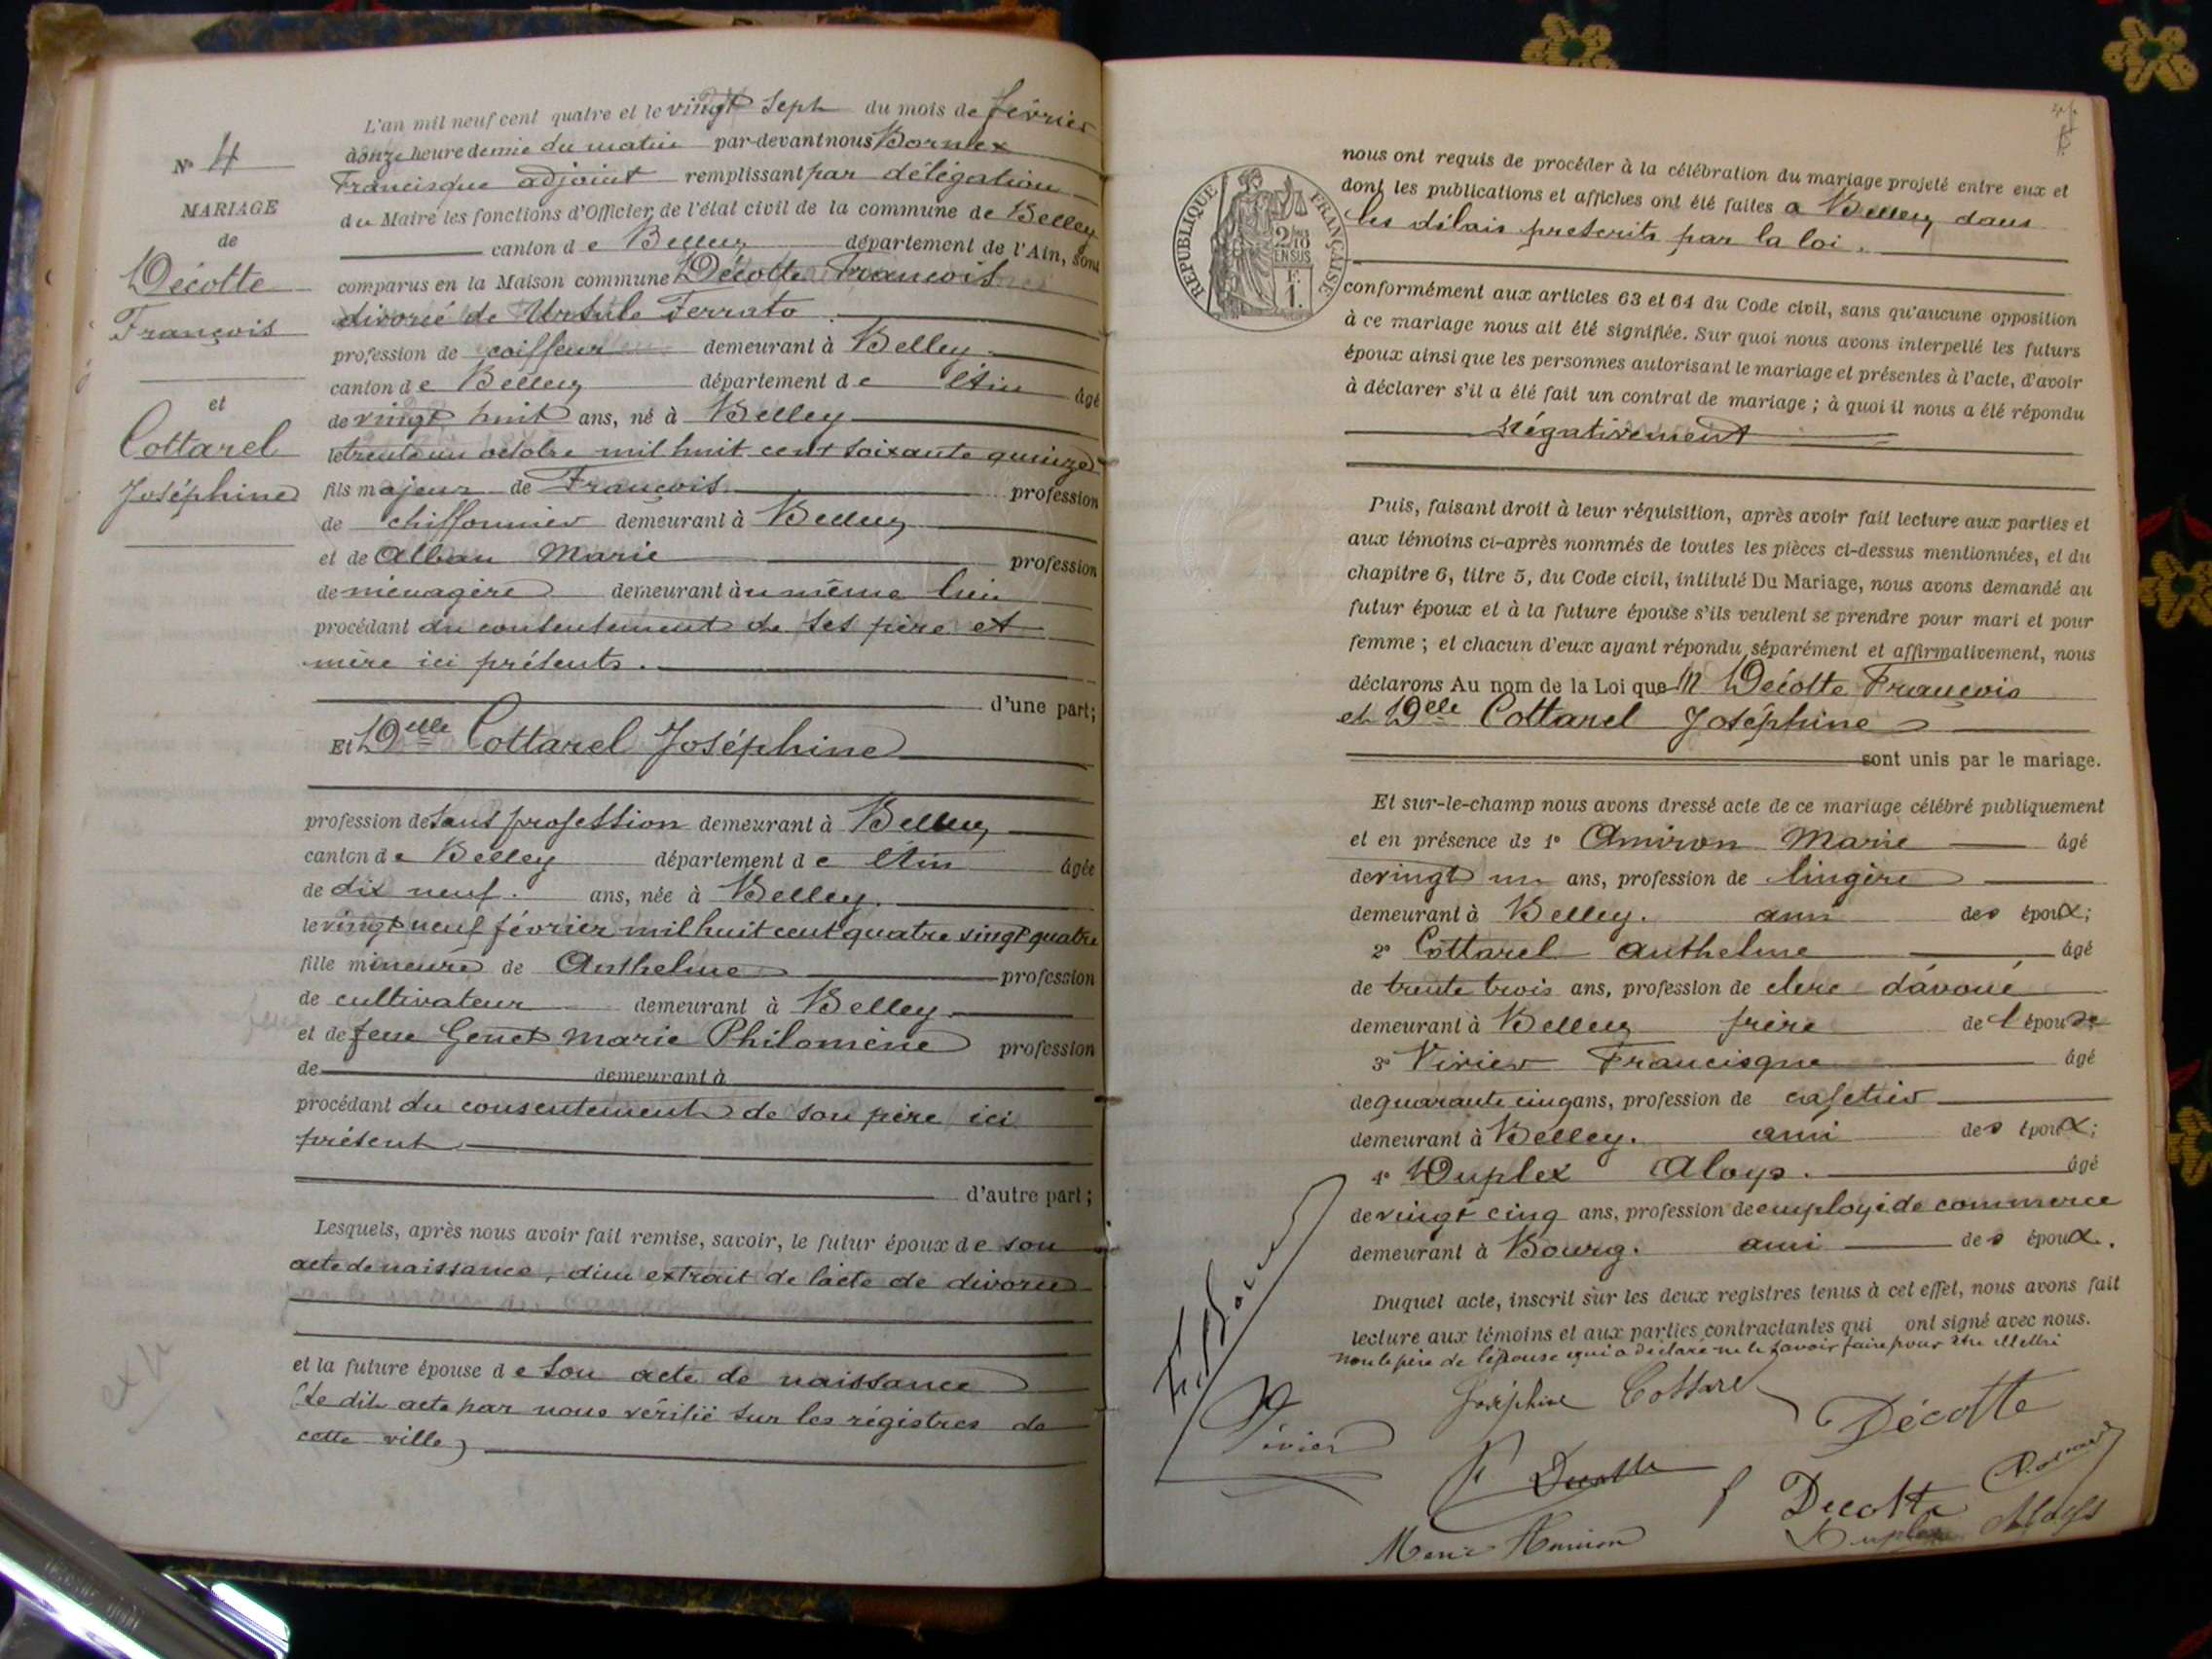 N° 4
MARIAGE
de
Décotte
François
et
Cottarel
Joséphine
L'an mil neuf cent quatre et le vingt sept du mois de février
à onze heure demie du matin par-devant nous Bornex
Francisque adjoint remplissant par délégation
du Maire les fonctions d'Officier de l'état civil de la commune de Belley
canton de Belley département de l'Ain, sont
comparus en la Maison commune Décotte François
divorcé de Ursule Ferrato
profession de coiffeur demeurant à Belley
canton de Belley département de l'Ain âgé
de vingt huit ans, né à Belley
le trente un octobre mil huit cent soixante quinze
fils majeur de François profession
de chiffonnier demeurant à Belley
et de Alban Marie profession
de ménagère demeurant au même lieu
procédant du consentement de ses père et
mère ici présents.
d'une part;
Et Delle Cottarel Joséphine
profession de sans profession demeurant à Belley
canton de Belley département de l'Ain âgée
de dix neuf. ans, née à Belley.
le vingt neuf février mil huit cent quatre vingt quatre
fille mineure de Anthelme profession
de cultivateur demeurant à Belley
et de feue Genet Marie Philomène profession
de demeurant à
procédant du consentement de son père ici
présent
d'autre part;
Lesquels, après nous avoir fait remise, savoir, le futur époux de son
acte de naissance, d'un extrait de l'acte de divorce
et la future épouse de son acte de naissance
(le dit acte par nous vérifié sur les régistres de
cette ville)
RÉPUBLIQUE FRANÇAISE
2/10
EN SUS
F.
1.
nous ont requis de procéder à la célébration du mariage projeté entre eux et
dont les publications et affiches ont été faites à Belley dans
les délais prescrits par la loi.
conformément aux articles 63 et 64 du Code civil, sans qu'aucune opposition
à ce mariage nous ait été signifiée. Sur quoi nous avons interpellé les futurs
époux ainsi que les personnes autorisant le mariage et présentes à l'acte, d'avoir
à déclarer s'il a été fait un contrat de mariage; à quoi il nous a été répondu
Négativement
Puis, faisant droit à leur réquisition, après avoir fait lecture aux parties et
aux témoins ci-après nommés de toutes les pièces ci-dessus mentionnées, et du
chapitre 6, titre 5, du Code civil, intitulé Du Mariage, nous avons demandé au
futur époux et à la future épouse s'ils veulent se prendre pour mari et pour
femme; et chacun d'eux ayant répondu séparément et affirmativement, nous
déclarons Au nom de la Loi que M Décotte François
et Delle Cottarel Joséphine
sont unis par le mariage.
Et sur-le-champ nous avons dressé acte de ce mariage célébré publiquement
et en présence de 1° Amiron Marie âgé
de vingt un ans, profession de lingère
demeurant à Belley. ami des époux;
2° Cottarel Anthelme âgé
de trente trois ans, profession de clerc d'avoué
demeurant à Belley frère de l'épouse
3° Vivier Francisque âgé
de quarante cinq ans, profession de cafetier
demeurant à Belley. ami des époux;
4° Duplex Aloys. âgé
de vingt cinq ans, profession de employé de commerce
demeurant à Bourg. ami des époux.
Duquel acte, inscrit sur les deux registres tenus à cet effet, nous avons fait
lecture aux témoins et aux parties contractantes qui ont signé avec nous.
non le père de l'épouse qui a déclaré ne le savoir faire pour être illettré
Joséphine Cottarel
Décotte
Vivier
Decotte
Decotte
Duplex Aloys